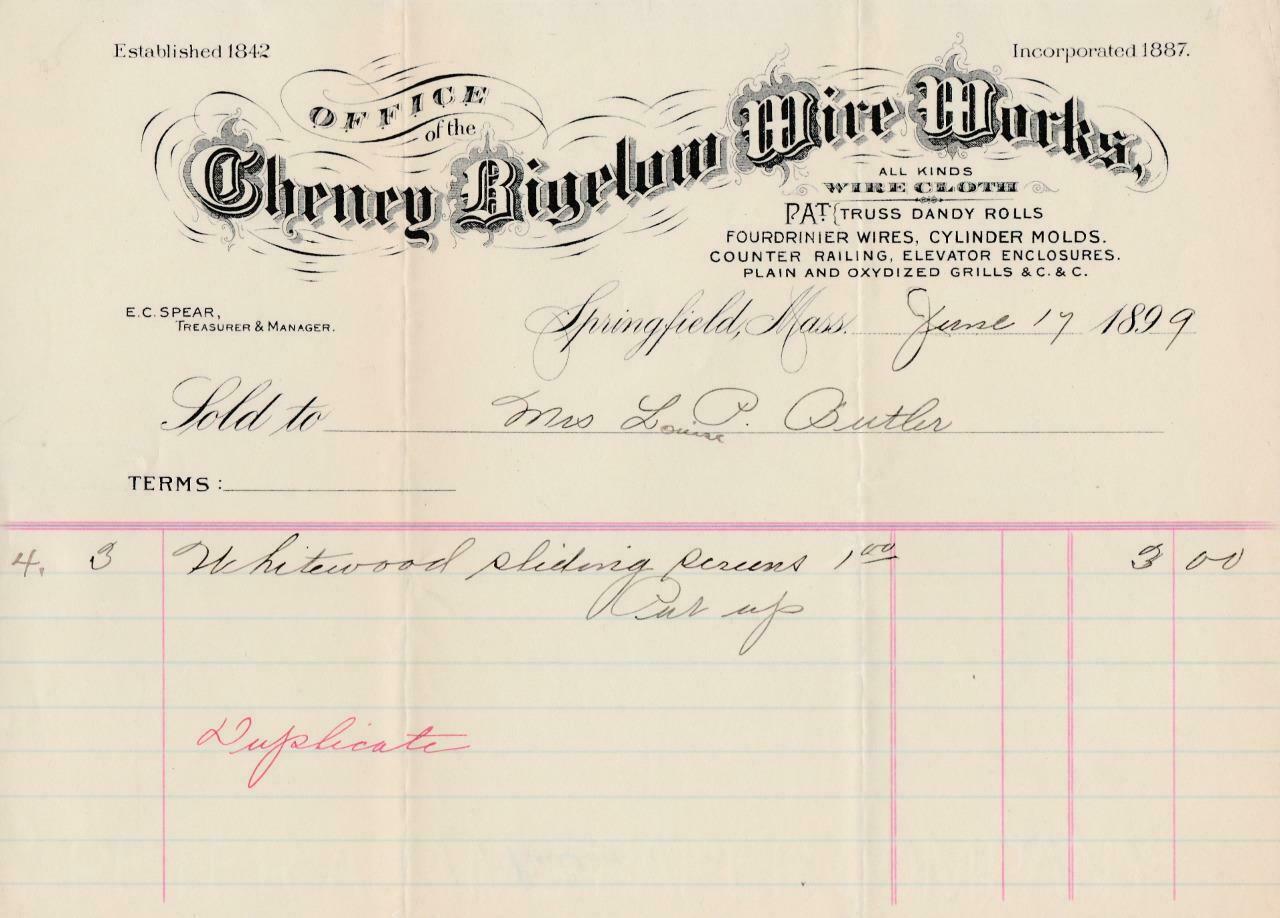 Established 1842
Incorporated 1887.
OFFICE
of the
Cheney Bigelow Wire Works,
ALL KINDS
WIRE CLOTH
PAT{TRUSS DANDY ROLLS
FOURDRINIER WIRES, CYLINDER MOLDS.
COUNTER RAILING, ELEVATOR ENCLOSURES.
PLAIN AND OXYDIZED GRILLS & C. & C.
E.C. SPEAR,
TREASURER & MANAGER.
Springfield, Mass. June 17 1899
Sold to Mrs Louise P. Butler
TERMS:
4. 3 Whitewood sliding screens 1 00 3 00
Put up
Duplicate